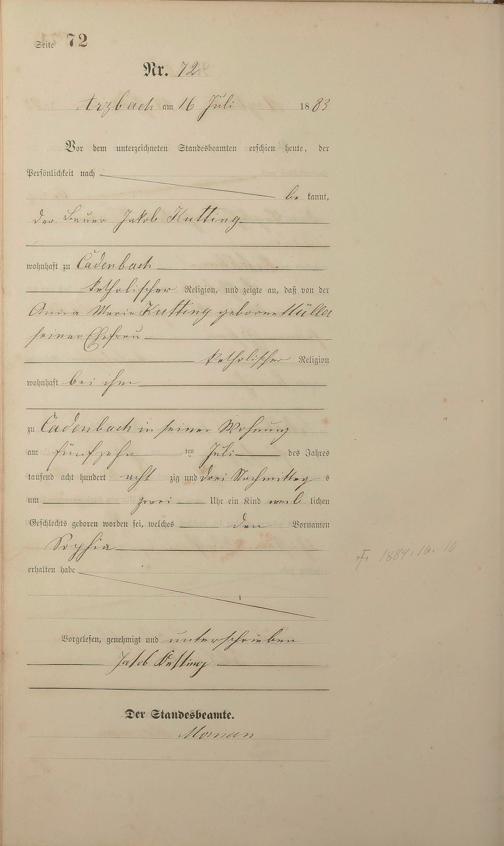 Seite 72
Nr. 72
Arzbach am 16 Juli 1883
Vor dem unterzeichneten Standesbeamten erschien heute, der
Persönlichkeit nach
be kannt,
der Bauer Jakob Kutting
wohnhaft zu Cadenbach
katholischer Religion, und zeigte an, daß von der
Anna Maria Kutting geborne Müller
seiner Ehefrau
katholischer Religion
wohnhaft bei ihm
zu Cadenbach in seiner Wohnung
am fünfzehn ten Juli des Jahres
tausend acht hundert acht zig und drei Nachmittag s
um zwei Uhr ein Kind weib lichen
Geschlechts geboren worden sei, welches den Vornamen
Sophia
erhalten habe
1884. 10. 10
Vorgelesen, genehmigt und unterschrieben
Jakob Kutting
Der Standesbeamte.